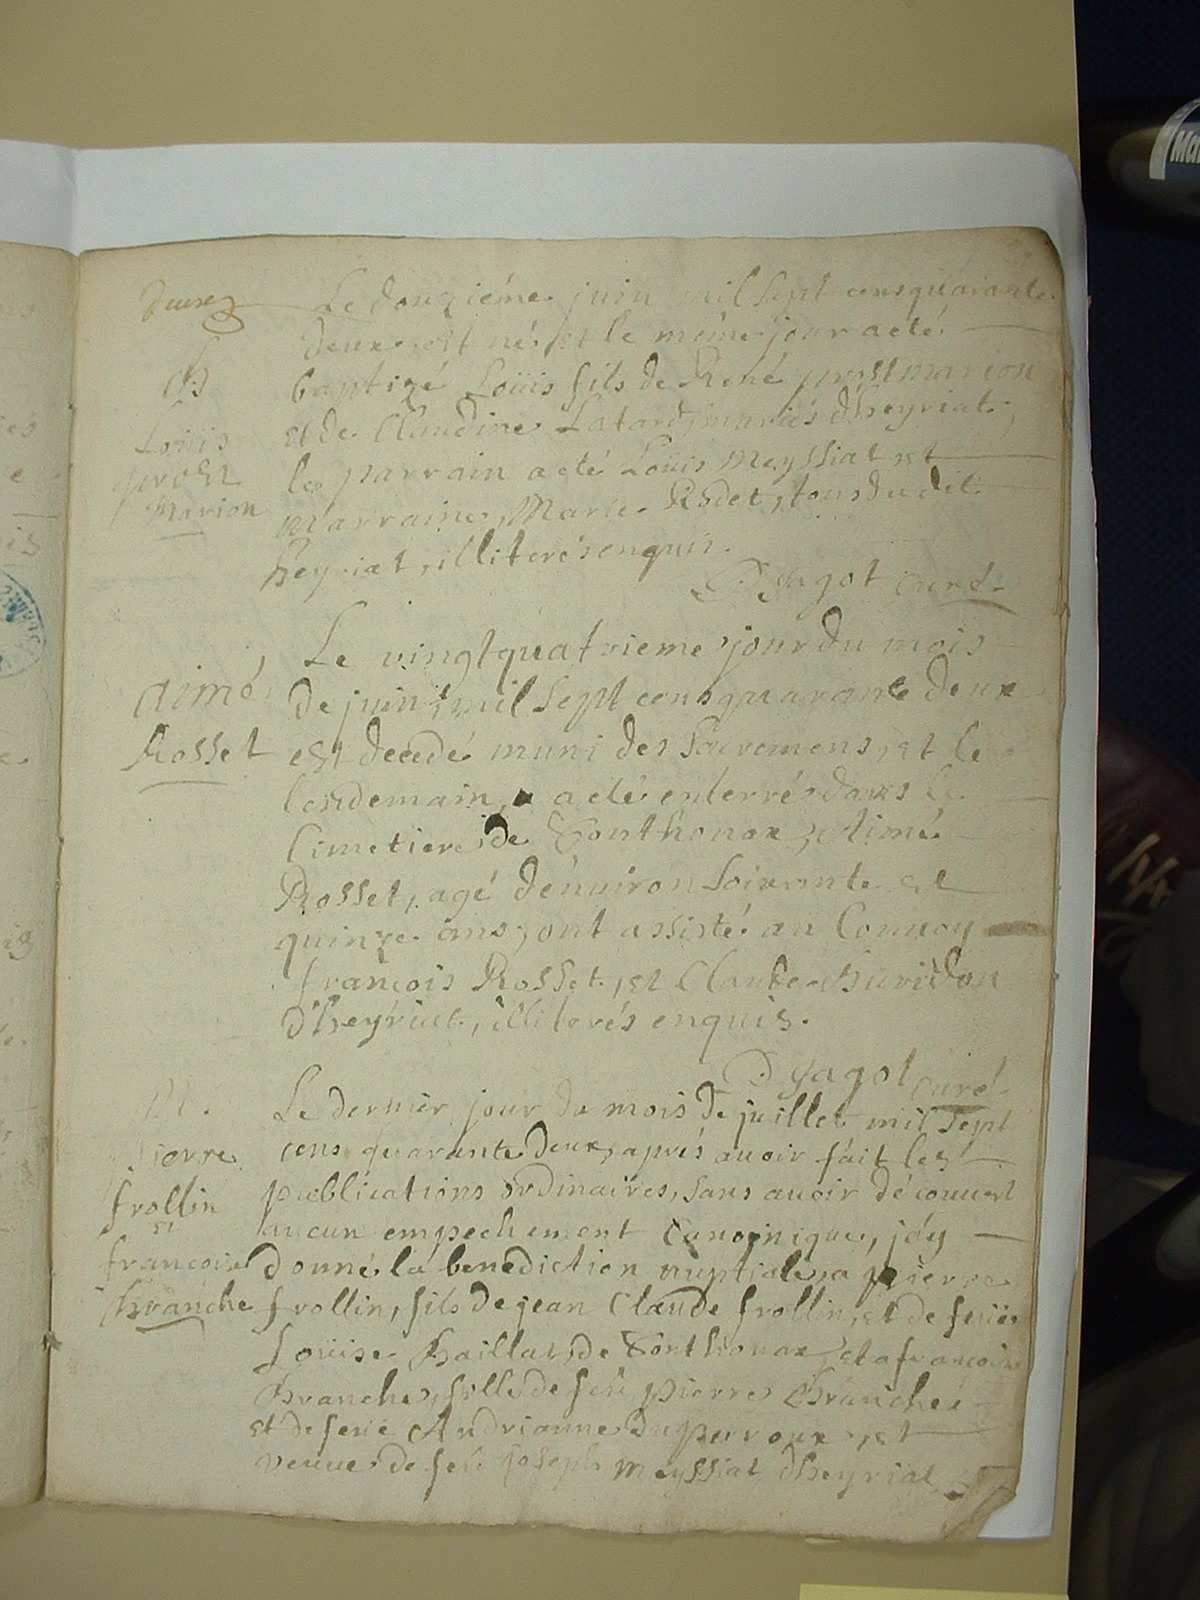 Le douziéme juin mil Sept cens quarante
deux est né et le même jour a eté
B
baptizé Loüis fils de René prost marion
Loüis
et de Claudine Latard, mariés d'heyriat,
prost
le parrain a eté Loüis Meyssiat et
Marion
marraine, Marie Rodet, tous du dit
heyriat, illiterés enquis.
D yagot curé.
Le vingt quatrieme jour du mois
Aimé
de juin, mil Sept cens quarante deux
Rosset
est decedé muni des Sacremens, et le
lendemain, a eté enterré dans le
Cimetiere de Sonthonax, Aimé
Rosset, agé d'enuiron Soixante et
quinze ans, ont assisté au Conuoy
françois Rosset, et Claude huridon
d'heyriat, illiterés enquis.
D yagot curé
M.
Le dernier jour du mois de juillet mil Sept
pierre
cens quarante deux, aprés auoir fait les
frollin
publications ordinaires, sans auoir découuert
et
aucun empechement Canoinique, j'ay
françoise
donné la benediction nuptiale a pierre
branche
frollin, fils de jean Claude frollin, et de feüe
Loüise baillat, de Sonthonax, et a françoise
branche, fille de feü pierre branche
et de feüe Andrianne Dupuroux, et
veuue de feü joseph Meyssiat d'heyriat